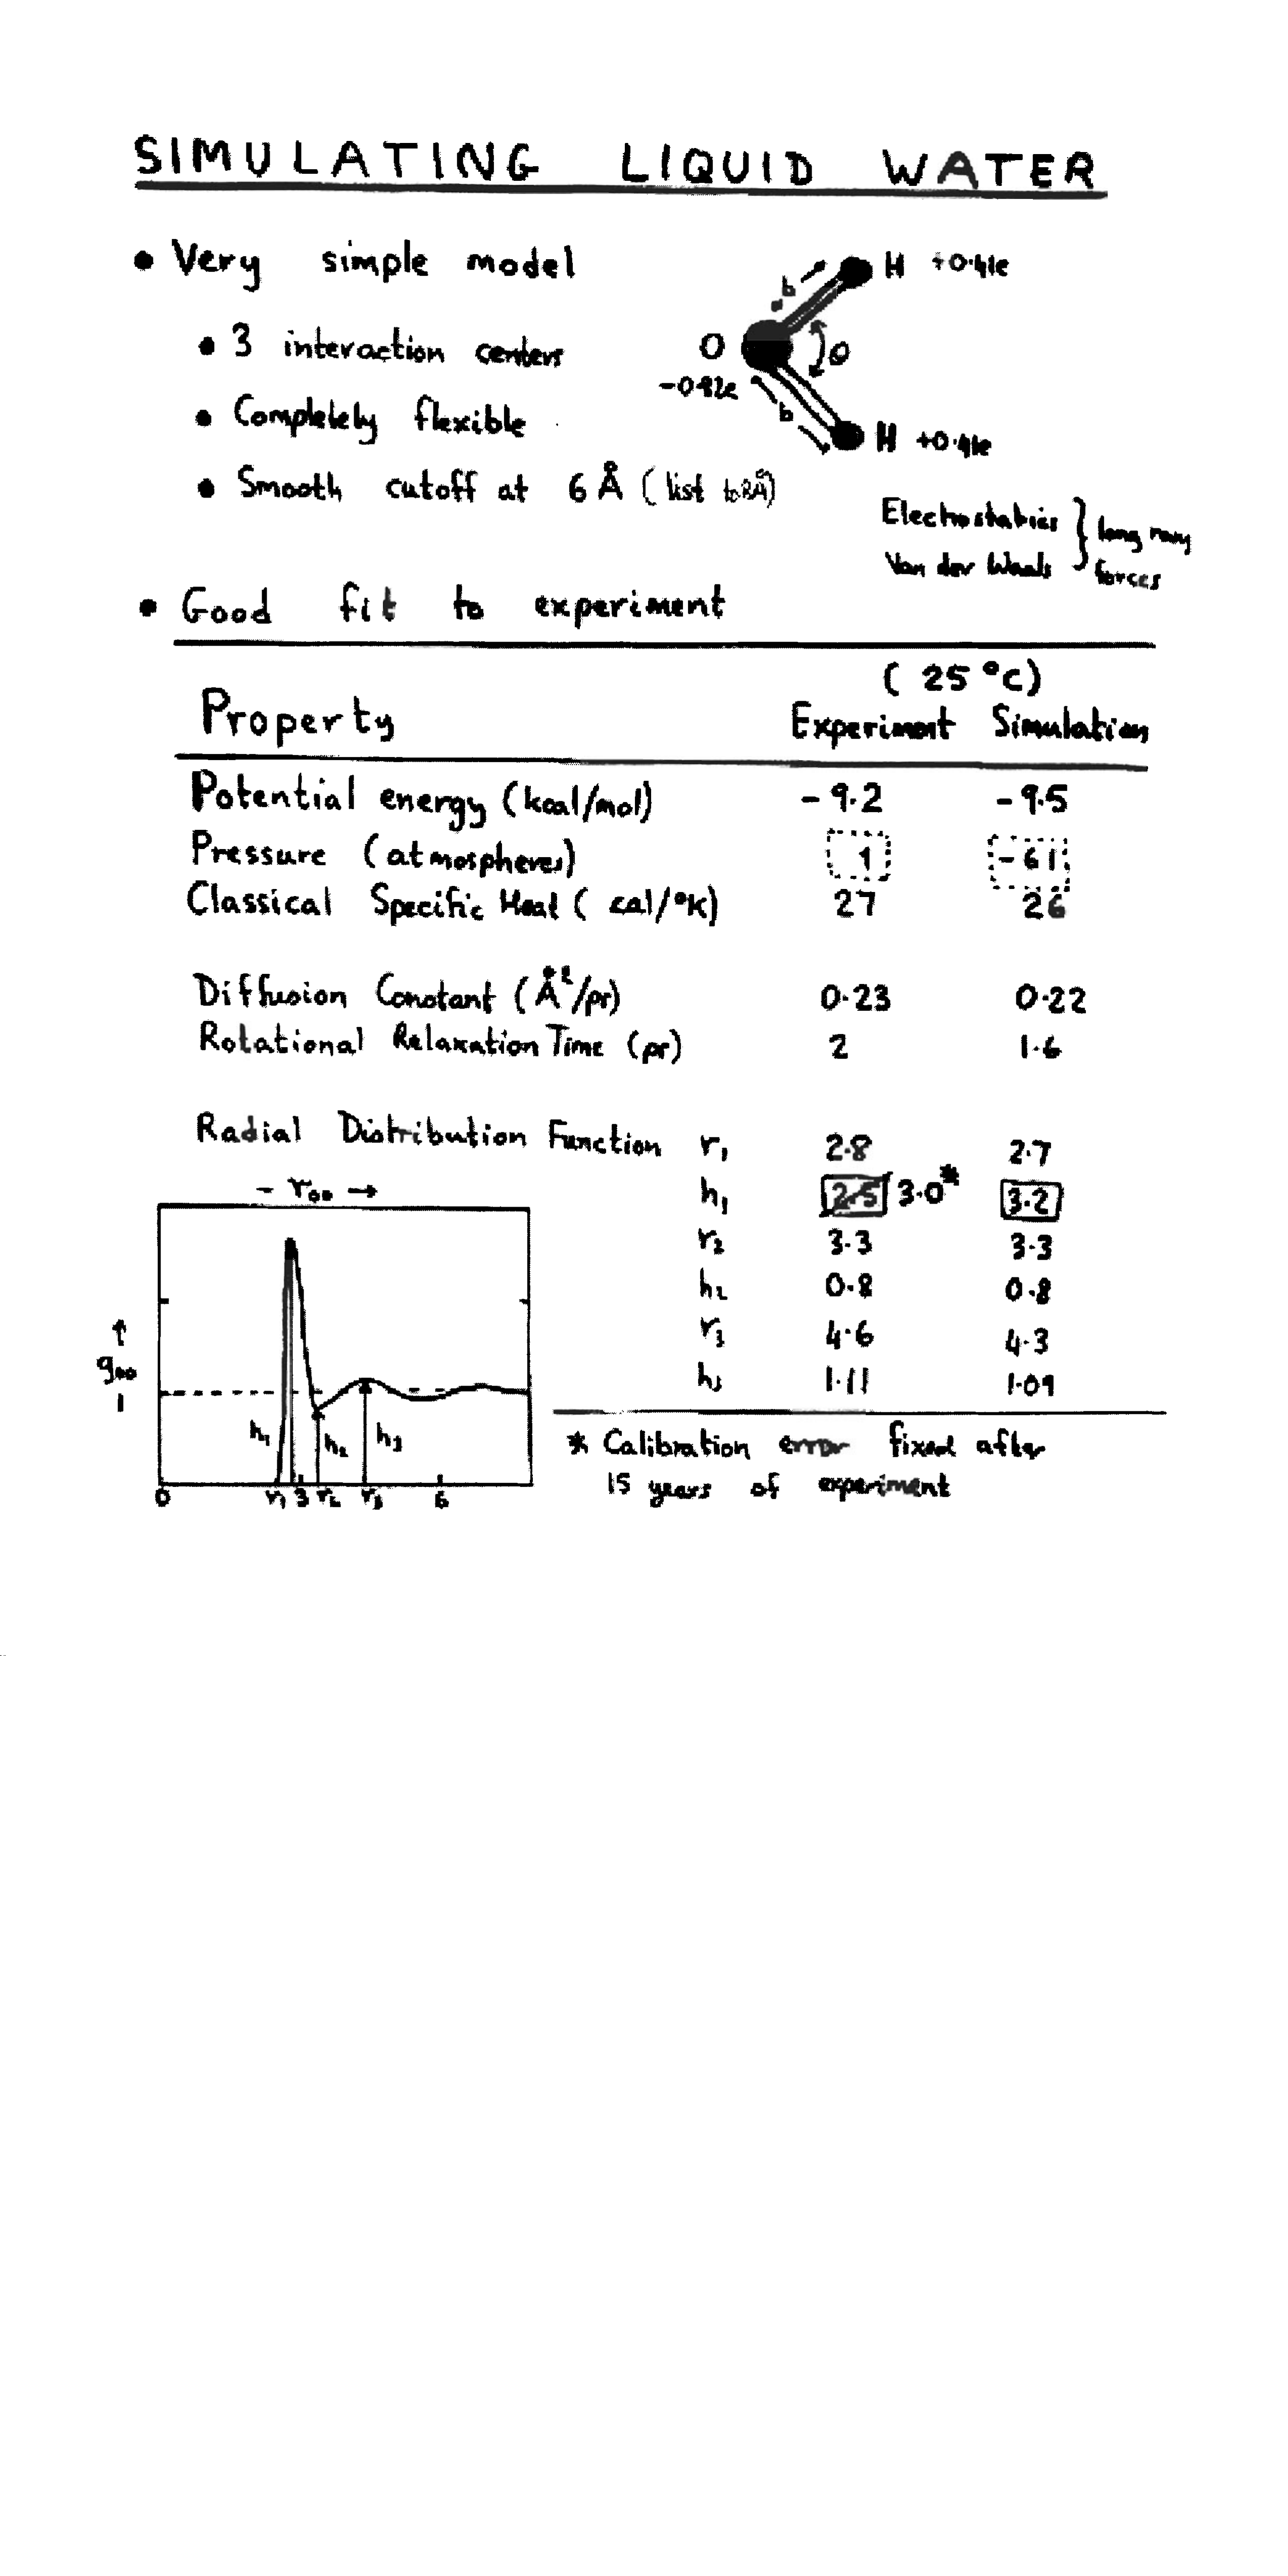 SIMULATING LIQUID WATER
• Very simple model
• 3 interaction centers
• Completely flexible
• Smooth cutoff at 6 Å (list to 8Å)
b H +0.41e
O θ
-0.82e
b H +0.41e
Electrostatics } long range
Van der Waals forces
• Good fit to experiment
(25 °C)
Property Experiment Simulation
Potential energy (kcal/mol) -9.2 -9.5
Pressure (atmospheres) 1 -61
Classical Specific Heat (cal/°K) 27 26
Diffusion Constant (Å²/ps) 0.23 0.22
Rotational Relaxation Time (ps) 2 1.6
Radial Distribution Function r₁ 2.8 2.7
h₁ 2.5 3.0* 3.2
r₂ 3.3 3.3
h₂ 0.8 0.8
r₃ 4.6 4.3
h₃ 1.11 1.09
- r₀₀ →
↑
g₀₀
1
h₁ h₂ h₃
0 r₁ 3 r₂ r₃ 6
* Calibration error fixed after
15 years of experiment